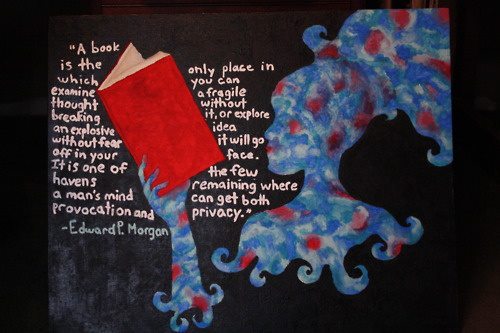 "A book
is the only place in
which you can
examine a fragile
thought without
breaking it, or explore
an explosive idea
without fear it will go
off in your face.
It is one of the few
havens remaining where
a man's mind can get both
provocation and privacy."
-Edward P. Morgan